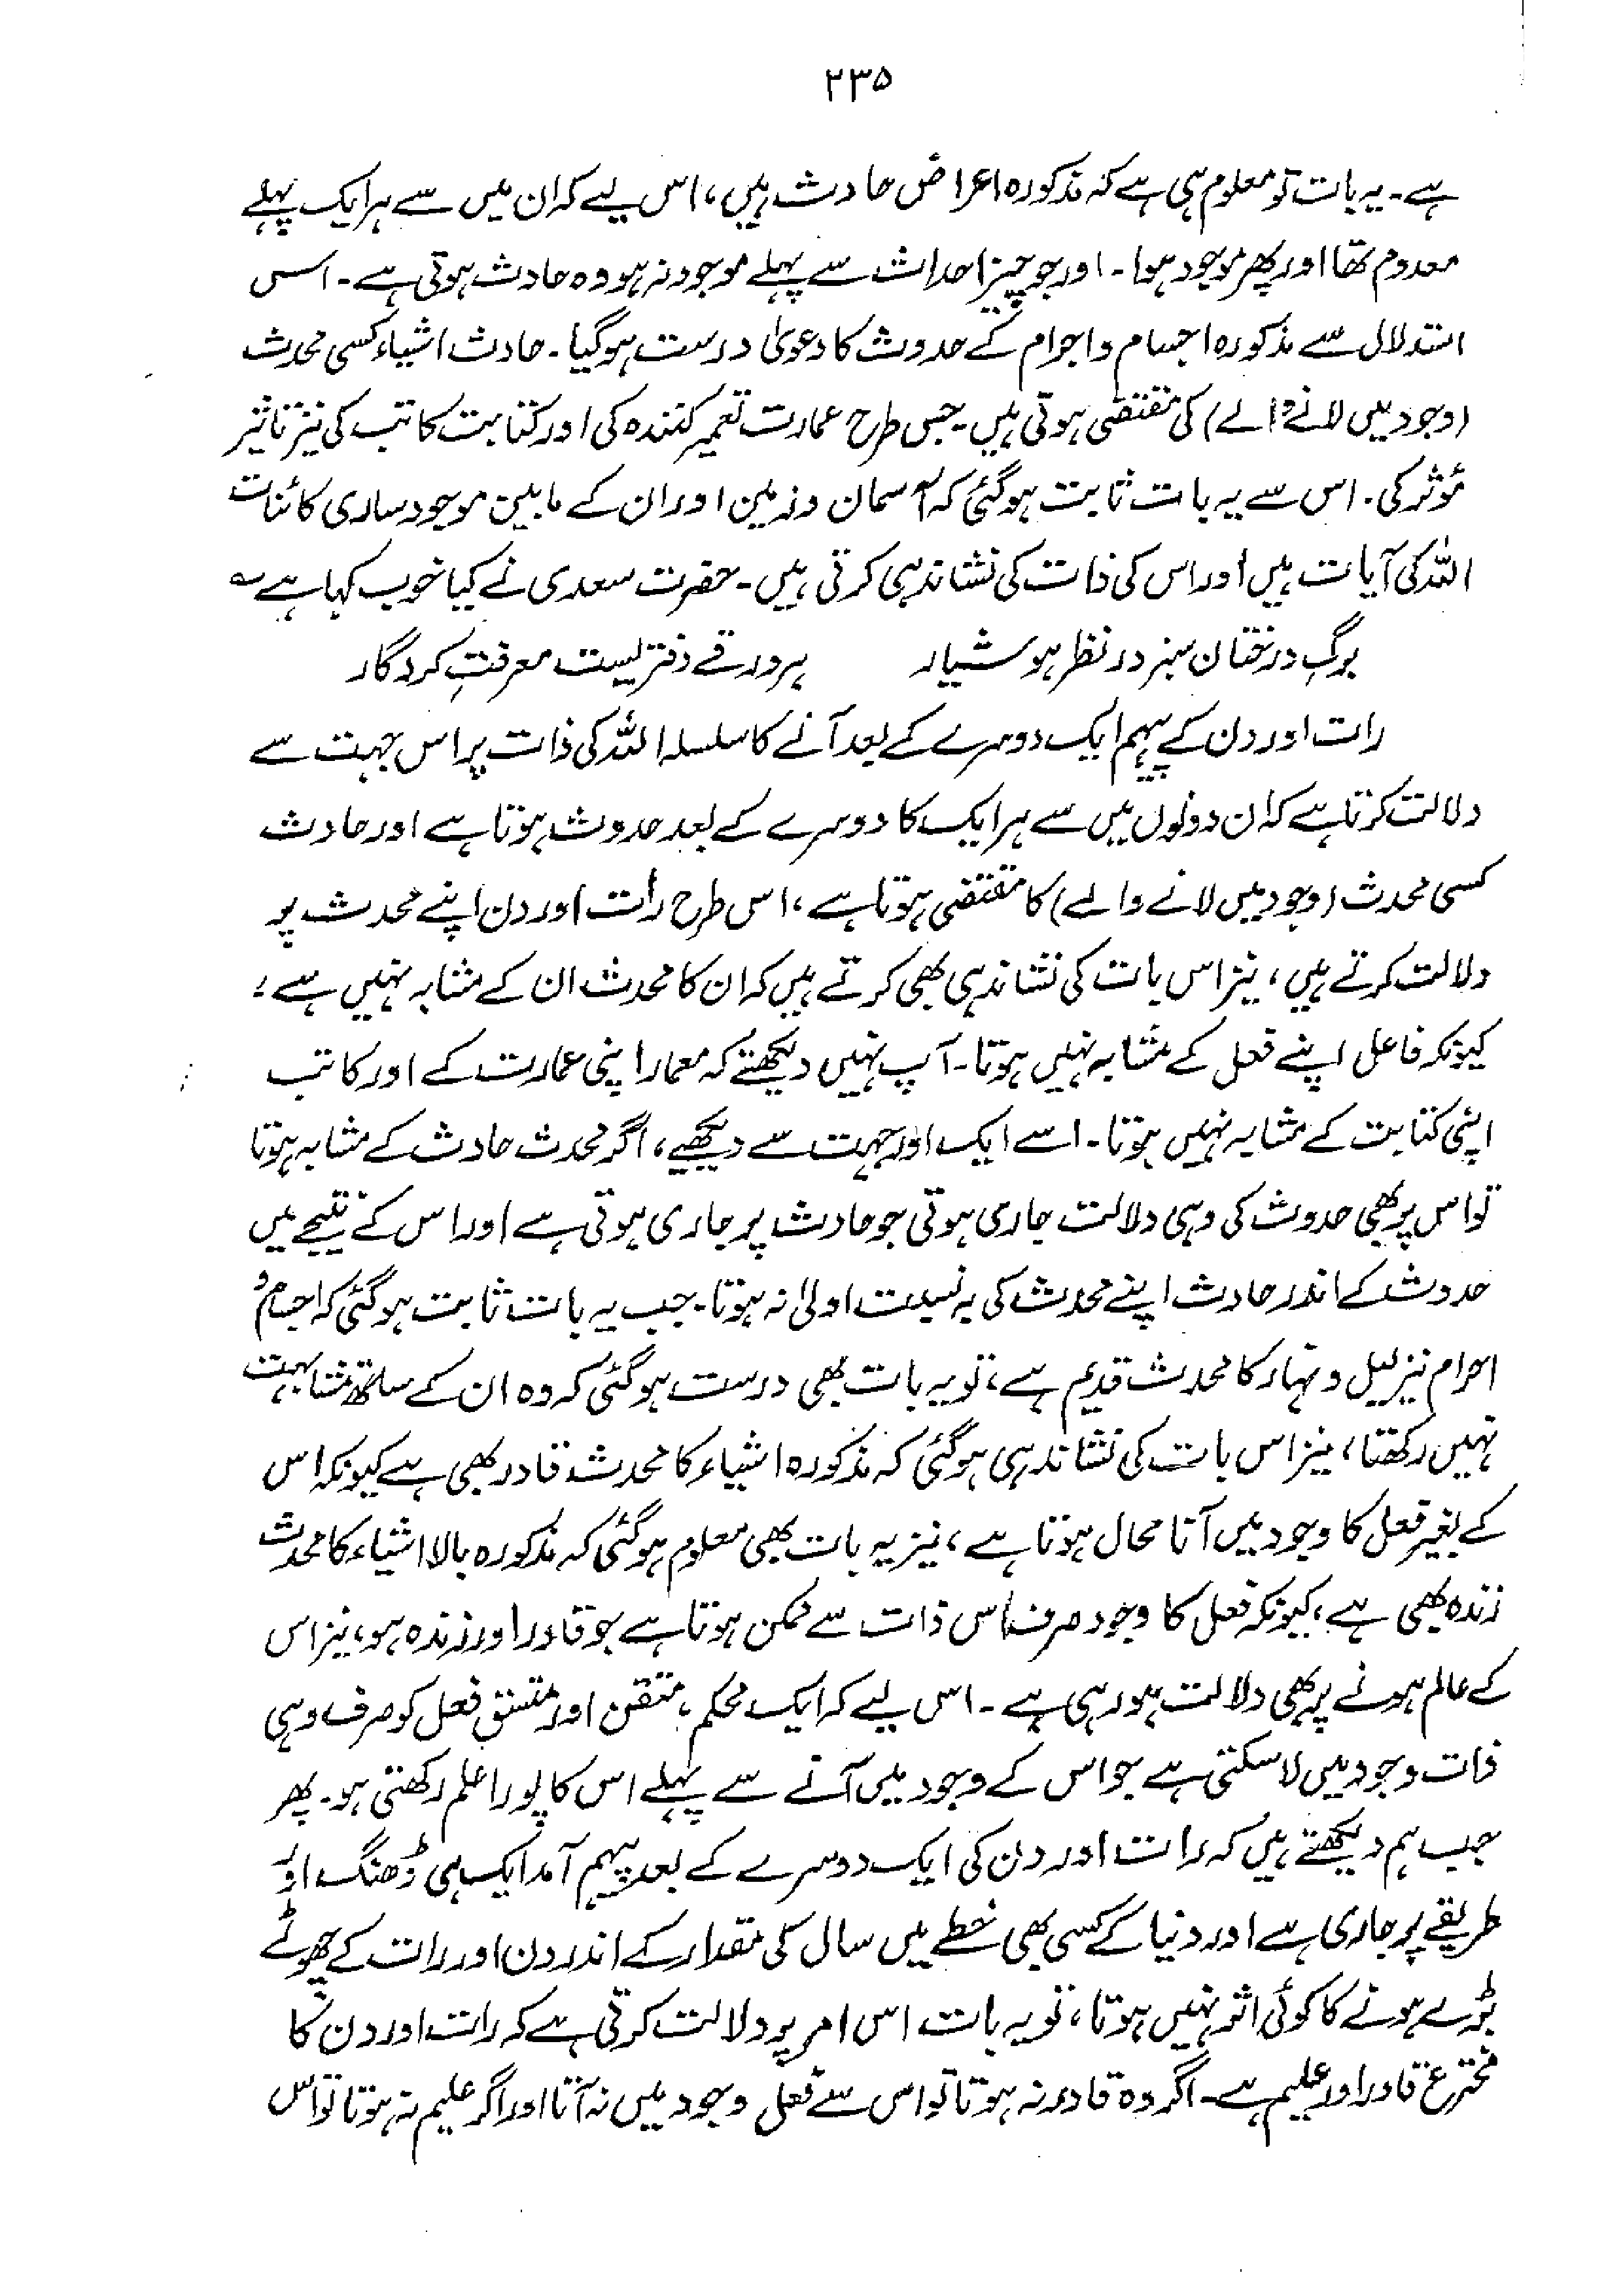 ۲۳۵
ہے۔ یہ بات تو معلوم ہی ہے کہ مذکورہ اعراض حادث ہیں، اس لیے کہ ان میں سے ہر ایک پہلے
معدوم تھا اور پھر موجود ہوا۔ اور جو چیز احداث سے پہلے موجود نہ ہو وہ حادث ہوتی ہے۔ اس
استدلال سے مذکورہ اجسام و اجرام کے حدوث کا دعویٰ درست ہوگیا۔ حادث اشیاء کسی محدث
(وجود میں لانے والے) کی مقتضی ہوتی ہیں۔ جس طرح عمارت تعمیر کنندہ کی اور کتابت کاتب کی نیز تاثیر
مؤثر کی۔ اس سے یہ بات ثابت ہوگئی کہ آسمان و زمین اور ان کے مابین موجود ساری کائنات
اللہ کی آیات ہیں اور اس کی ذات کی نشاندہی کرتی ہیں۔ حضرت سعدی نے کیا خوب کہا ہے ؎
برگِ درختان سبز در نظر ہوشیار ہر ورقے دفتریست معرفتِ کردگار
رات اور دن کے پیہم ایک دوسرے کے بعد آنے کا سلسلہ اللہ کی ذات پر اس جہت سے
دلالت کرتا ہے کہ ان دونوں میں سے ہر ایک کا دوسرے کے بعد حدوث ہوتا ہے اور حادث
کسی محدث (وجود میں لانے والے) کا مقتضی ہوتا ہے، اس طرح رات اور دن اپنے محدث پر
دلالت کرتے ہیں، نیز اس بات کی نشاندہی بھی کرتے ہیں کہ ان کا محدث ان کے مشابہ نہیں ہے،
کیونکہ فاعل اپنے فعل کے مشابہ نہیں ہوتا۔ آپ نہیں دیکھتے کہ معمار اپنی عمارت کے اور کاتب
اپنی کتابت کے مشابہ نہیں ہوتا۔ اسے ایک اور جہت سے دیکھیے، اگر محدث حادث کے مشابہ ہوتا
تو اس پر بھی حدوث کی وہی دلالت جاری ہوتی جو حادث پر جاری ہوتی ہے اور اس کے نتیجے میں
حدوث کے اندر حادث اپنے محدث کی بہ نسبت اولیٰ نہ ہوتا۔ جب یہ بات ثابت ہوگئی کہ اجسام و
اجرام نیز لیل و نہار کا محدث قدیم ہے، تو یہ بات بھی درست ہوگئی کہ وہ ان کے ساتھ مشابہت
نہیں رکھتا، نیز اس بات کی نشاندہی ہوگئی کہ مذکورہ اشیاء کا محدث قادر بھی ہے کیونکہ اس
کے بغیر فعل کا وجود میں آنا محال ہوتا ہے، نیز یہ بات بھی معلوم ہوگئی کہ مذکورہ بالا اشیاء کا محدث
زندہ بھی ہے، کیونکہ فعل کا وجود صرف اس ذات سے ممکن ہوتا ہے جو قادر اور زندہ ہو، نیز اس
کے عالم ہونے پر بھی دلالت ہو رہی ہے۔ اس لیے کہ ایک محکم، متقن اور متسق فعل کو صرف وہی
ذات وجود میں لا سکتی ہے جو اس کے وجود میں آنے سے پہلے اس کا پورا علم رکھتی ہو۔ پھر
جب ہم دیکھتے ہیں کہ رات اور دن کی ایک دوسرے کے بعد پیہم آمد ایک ہی ڈھنگ اور
طریقے پر جاری ہے اور دنیا کے کسی بھی خطے میں سال کی مقدار کے اندر دن اور رات کے چھوٹے
بڑے ہونے کا کوئی اثر نہیں ہوتا، تو یہ بات اس امر پر دلالت کرتی ہے کہ رات اور دن کا
مخترع قادر اور علیم ہے۔ اگر وہ قادر نہ ہوتا تو اس سے فعل وجود میں نہ آتا اور اگر علیم نہ ہوتا تو اس